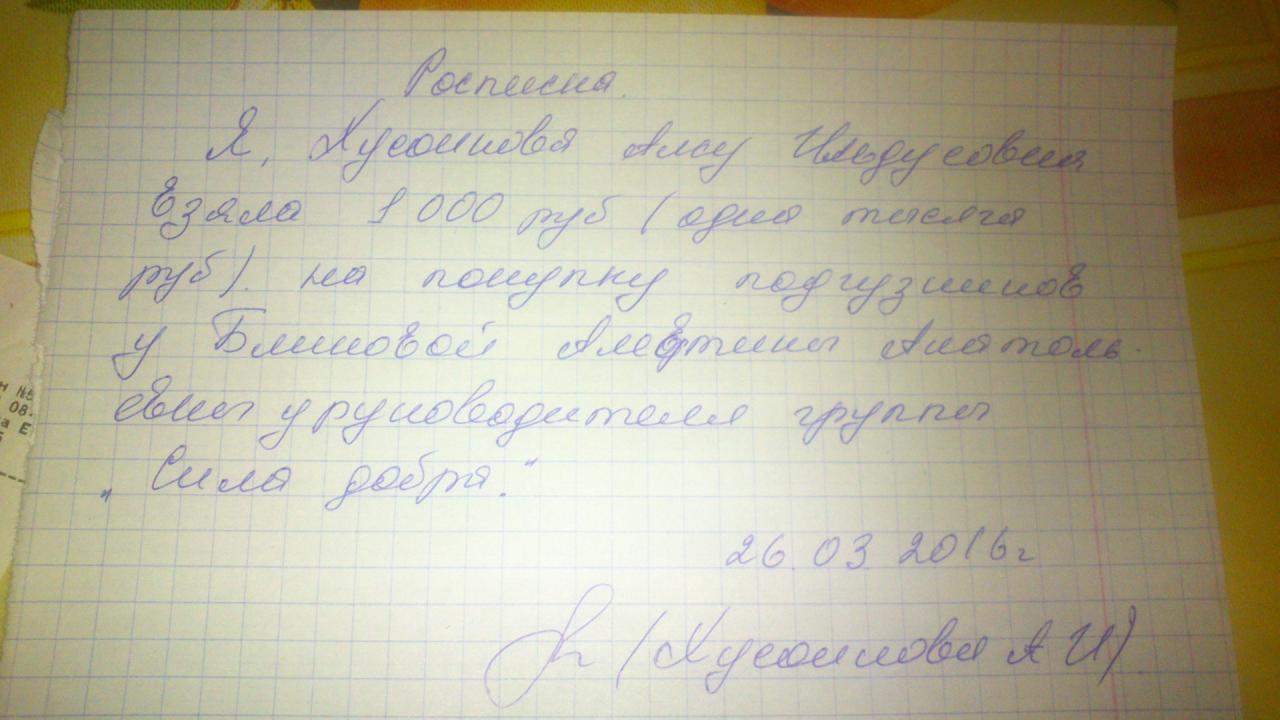 Росписка.
Я, Хусаинова Алсу Ильдусовна
Взяла 1 000 руб (одна тысяча
руб). на покупку подгузников
у Блиновой Алевтины Анатоль-
евны у руководителя группы
„Сила добра."
26.03 2016г
(Хусаинова А И)
н №
08.
а Е